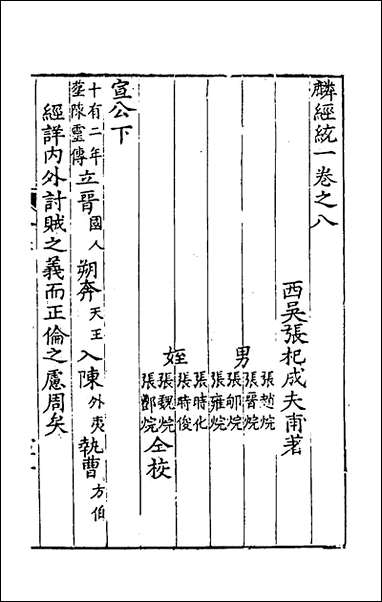 麟經統一卷之八
西吳張杞成夫甫著
男
張趙烷
張晉烷
張邯烷
張雍烷
姪
張時化
張時俊
張魏烷
張酆烷
仝校
宣公下
十有二年
塟陳靈傳
立晉國人朔奔天王入陳外夷執曹方伯
經詳内外討賊之義而正倫之慮周矣